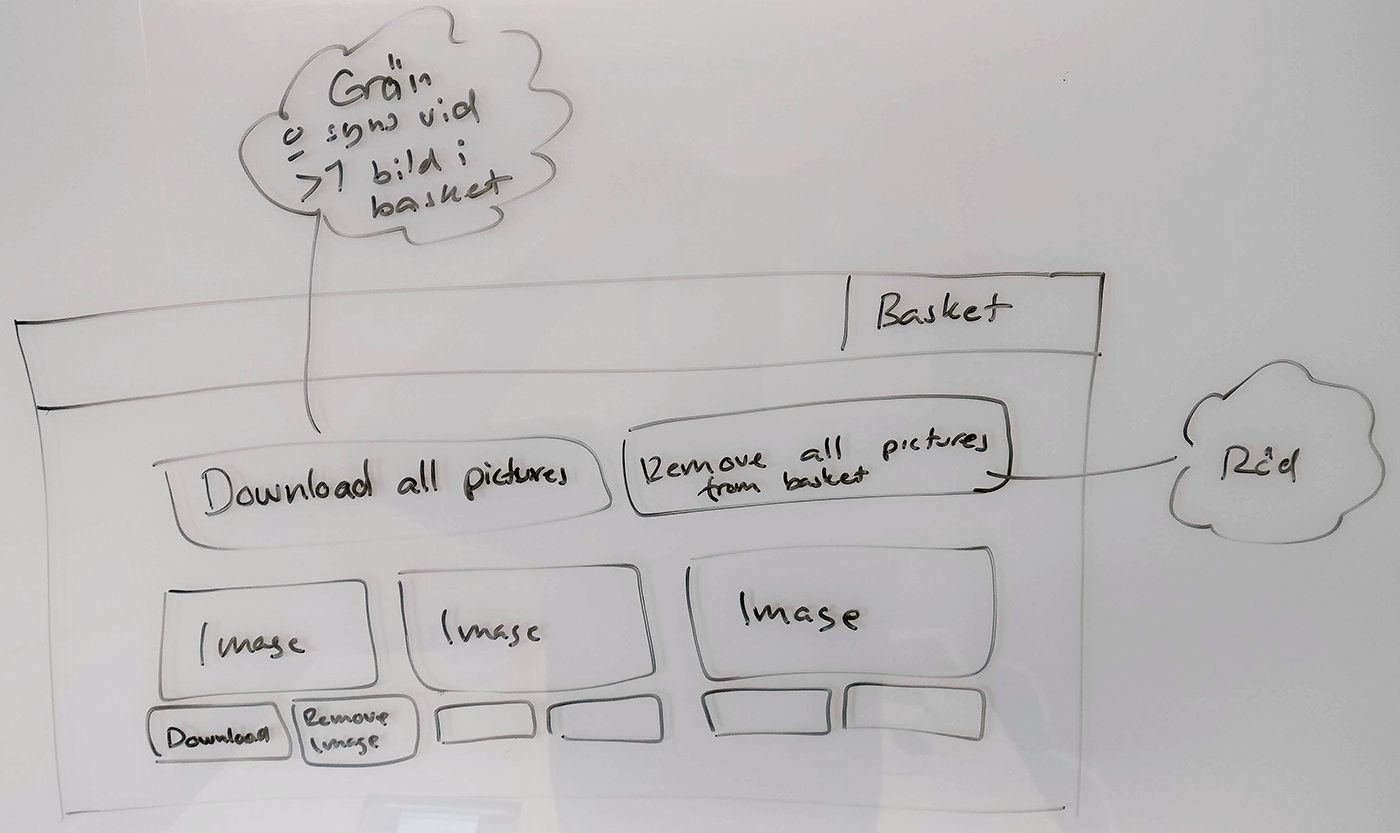 Grön
o syns vid
- >1 bild i
basket
Basket
Download all pictures
Remove all pictures
from basket
Röd
Image
Image
Image
Download
Remove
Image